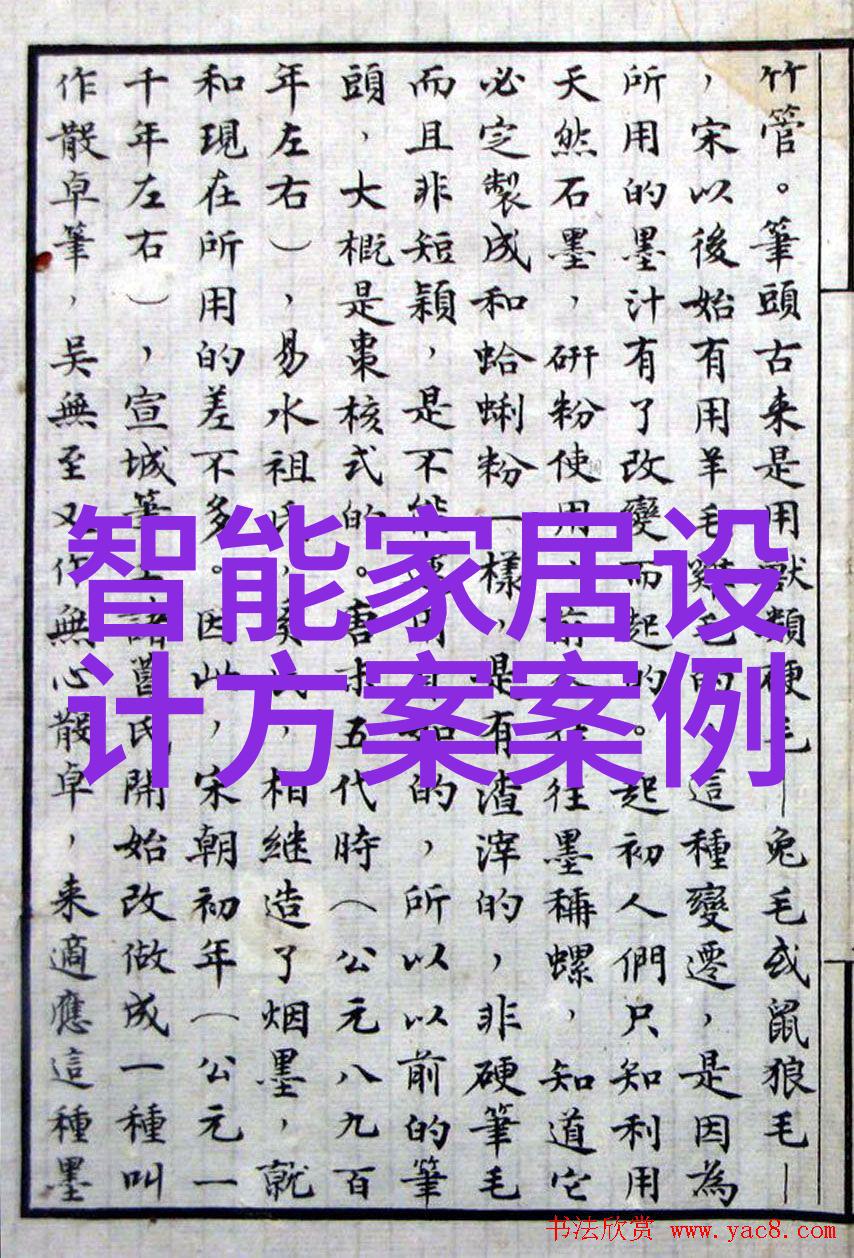 竹管。筆頭古来是用獸類硬毛—兔毛或鼠狼毛—
，宋以後始有用羊毛雞毛的。這種變遷，是因為
所用的墨汁有了改變而起的。起初人們只知利用
天然石墨，研粉使用，往往墨稱螺，知道它
必定製成和蛤蜊粉一樣，是有渣滓的，非硬筆毛
而且非短穎，是不能如的，所以以前的筆
頭，大概是棗核式的。唐末五代時（公元八九百
年左右），易水祖氏，氏，相继造了烟墨，就
和現在所用的差不多。因此，宋朝初年（公元一
千年左右），宣城筆工諸氏開始改做成一種叫
作散卓筆，吳無至又作無心散卓，来適應這種墨
智能家居设
计方案案例
书法欣赏 www.yac8.com